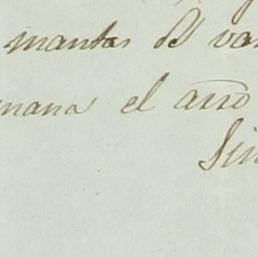 mantas de va
mana el arro
Sin